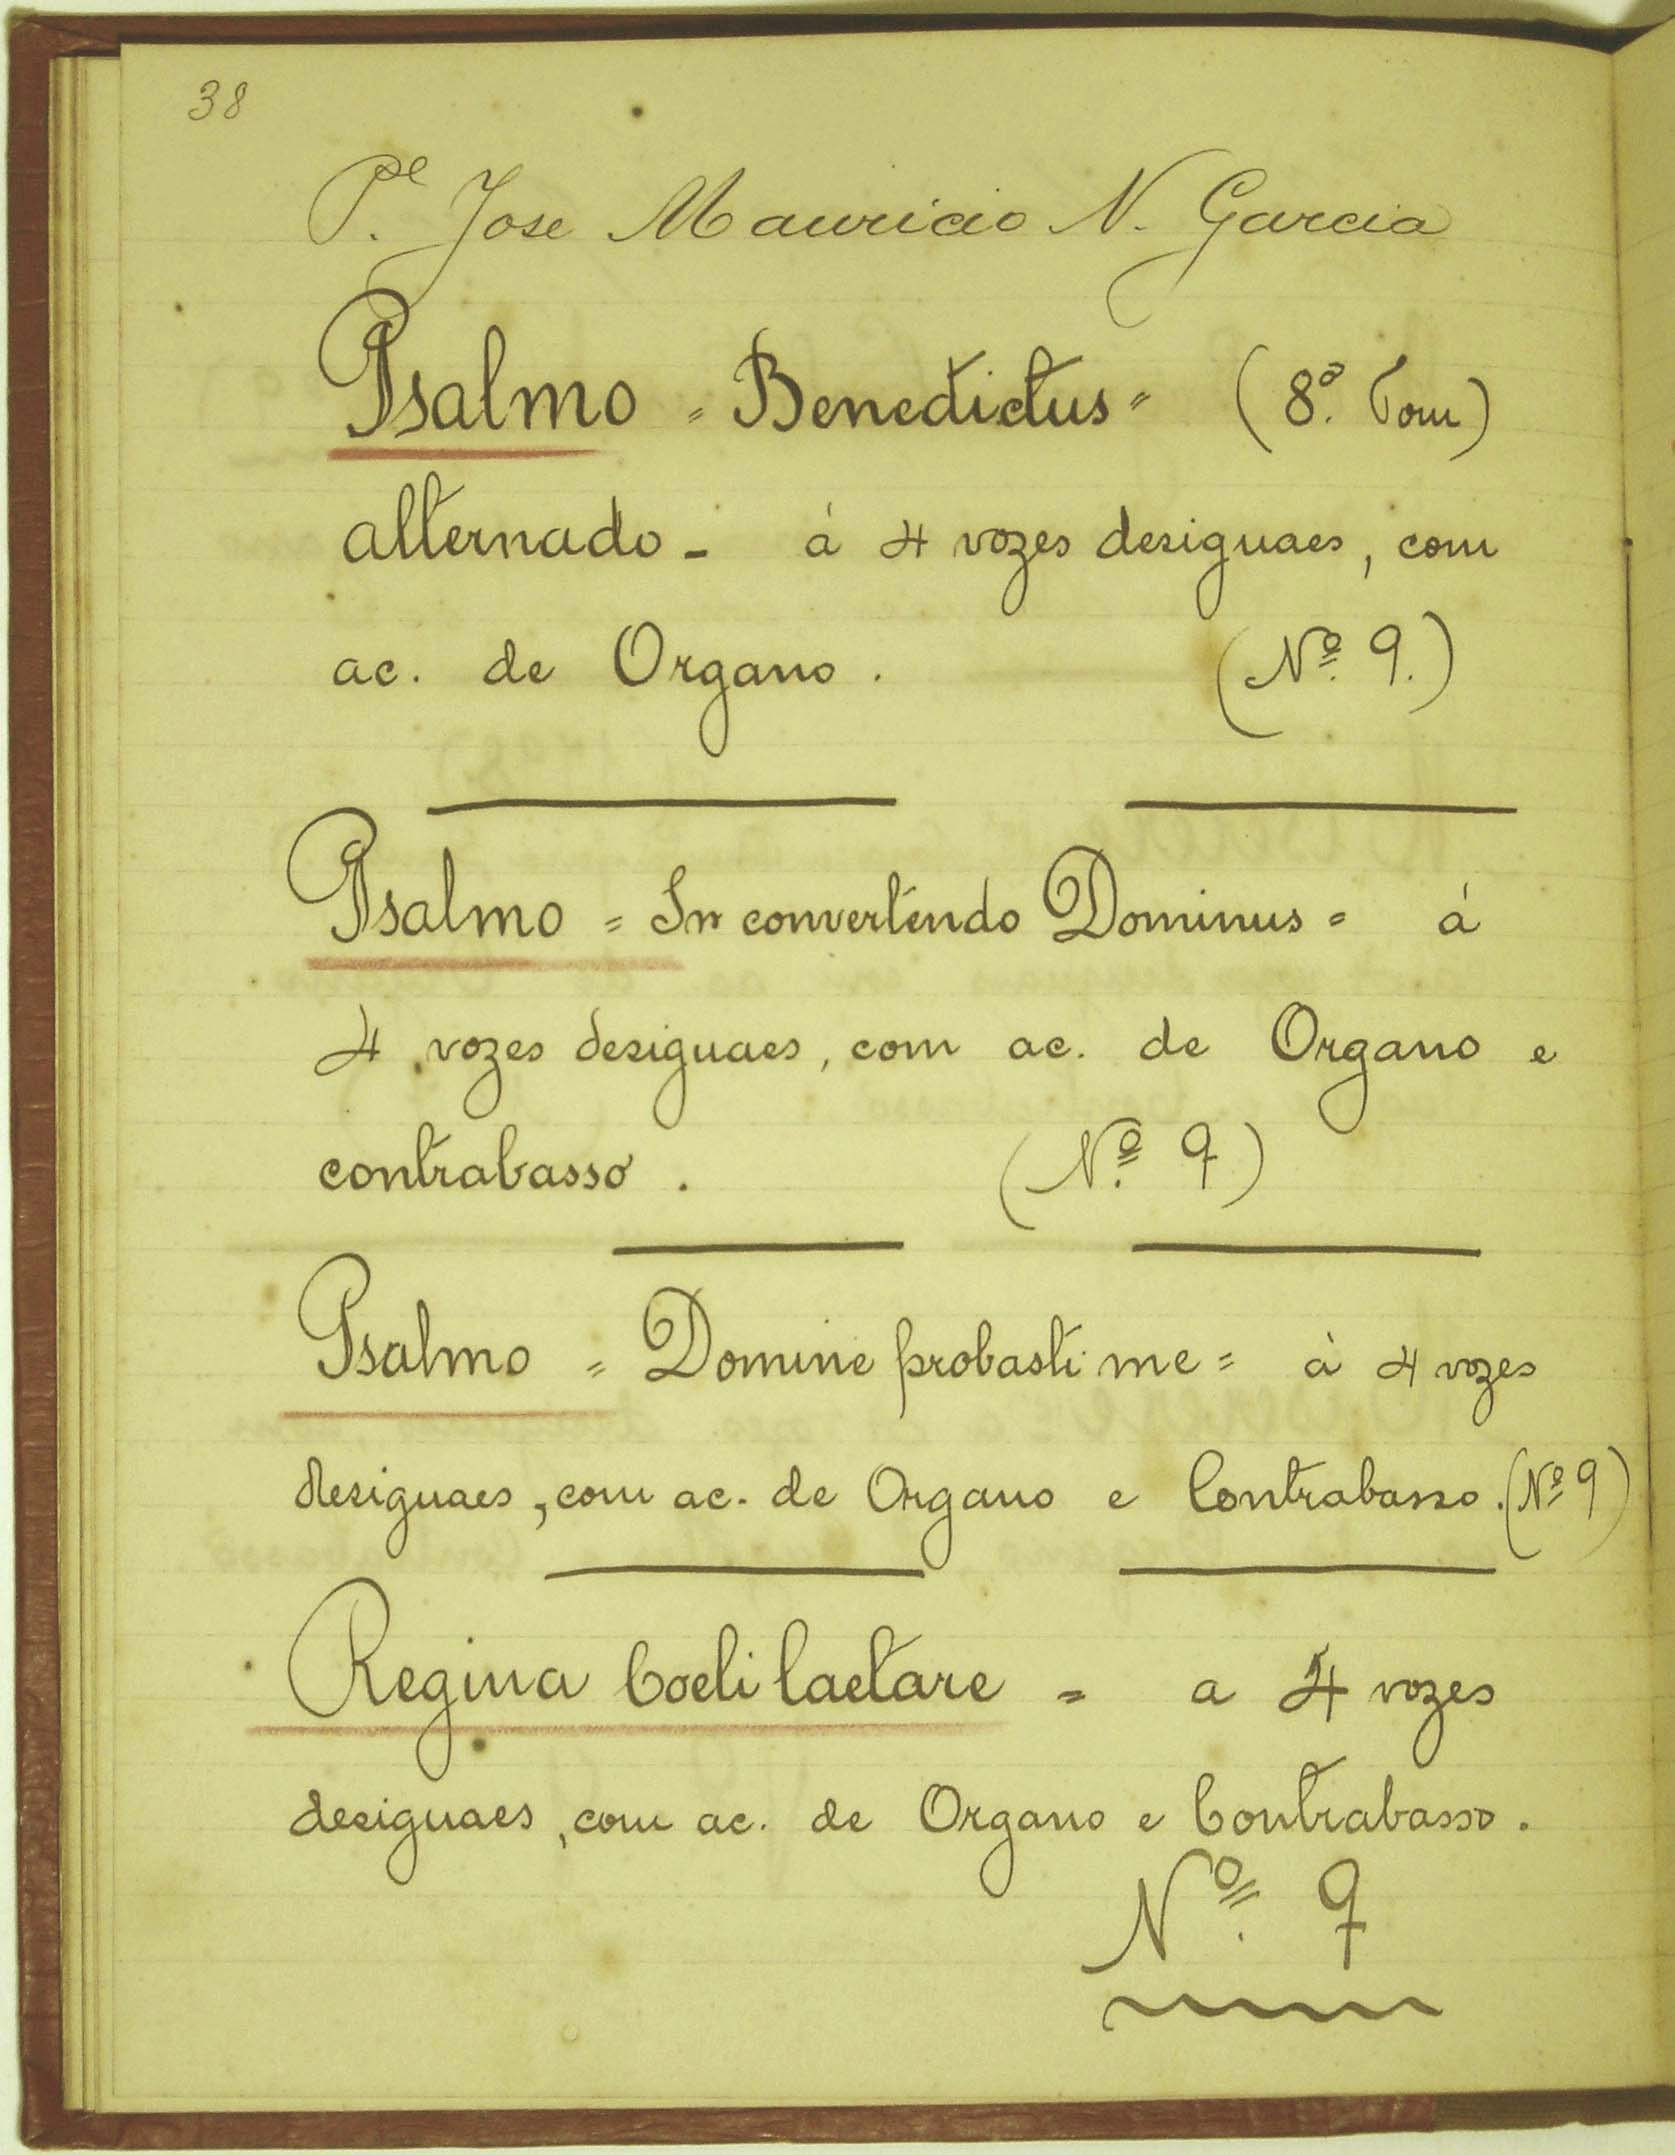 38
Pe. Jose Mauricio N. Garcia
Psalmo = Benedictus = (8º. Tom)
alternado - á 4 vozes desiguaes, com
ac. de Organo. (Nº. 9.)
Psalmo = In convertendo Dominus = á
4 vozes desiguaes, com ac. de Organo e
contrabasso. (Nº. 9)
Psalmo = Domine probasti me = à 4 vozes
desiguaes, com ac. de Organo e Contrabasso. (Nº 9)
Regina Coeli laetare = a 4 vozes
desiguaes, com ac. de Organo e Contrabasso.
Nº. 9